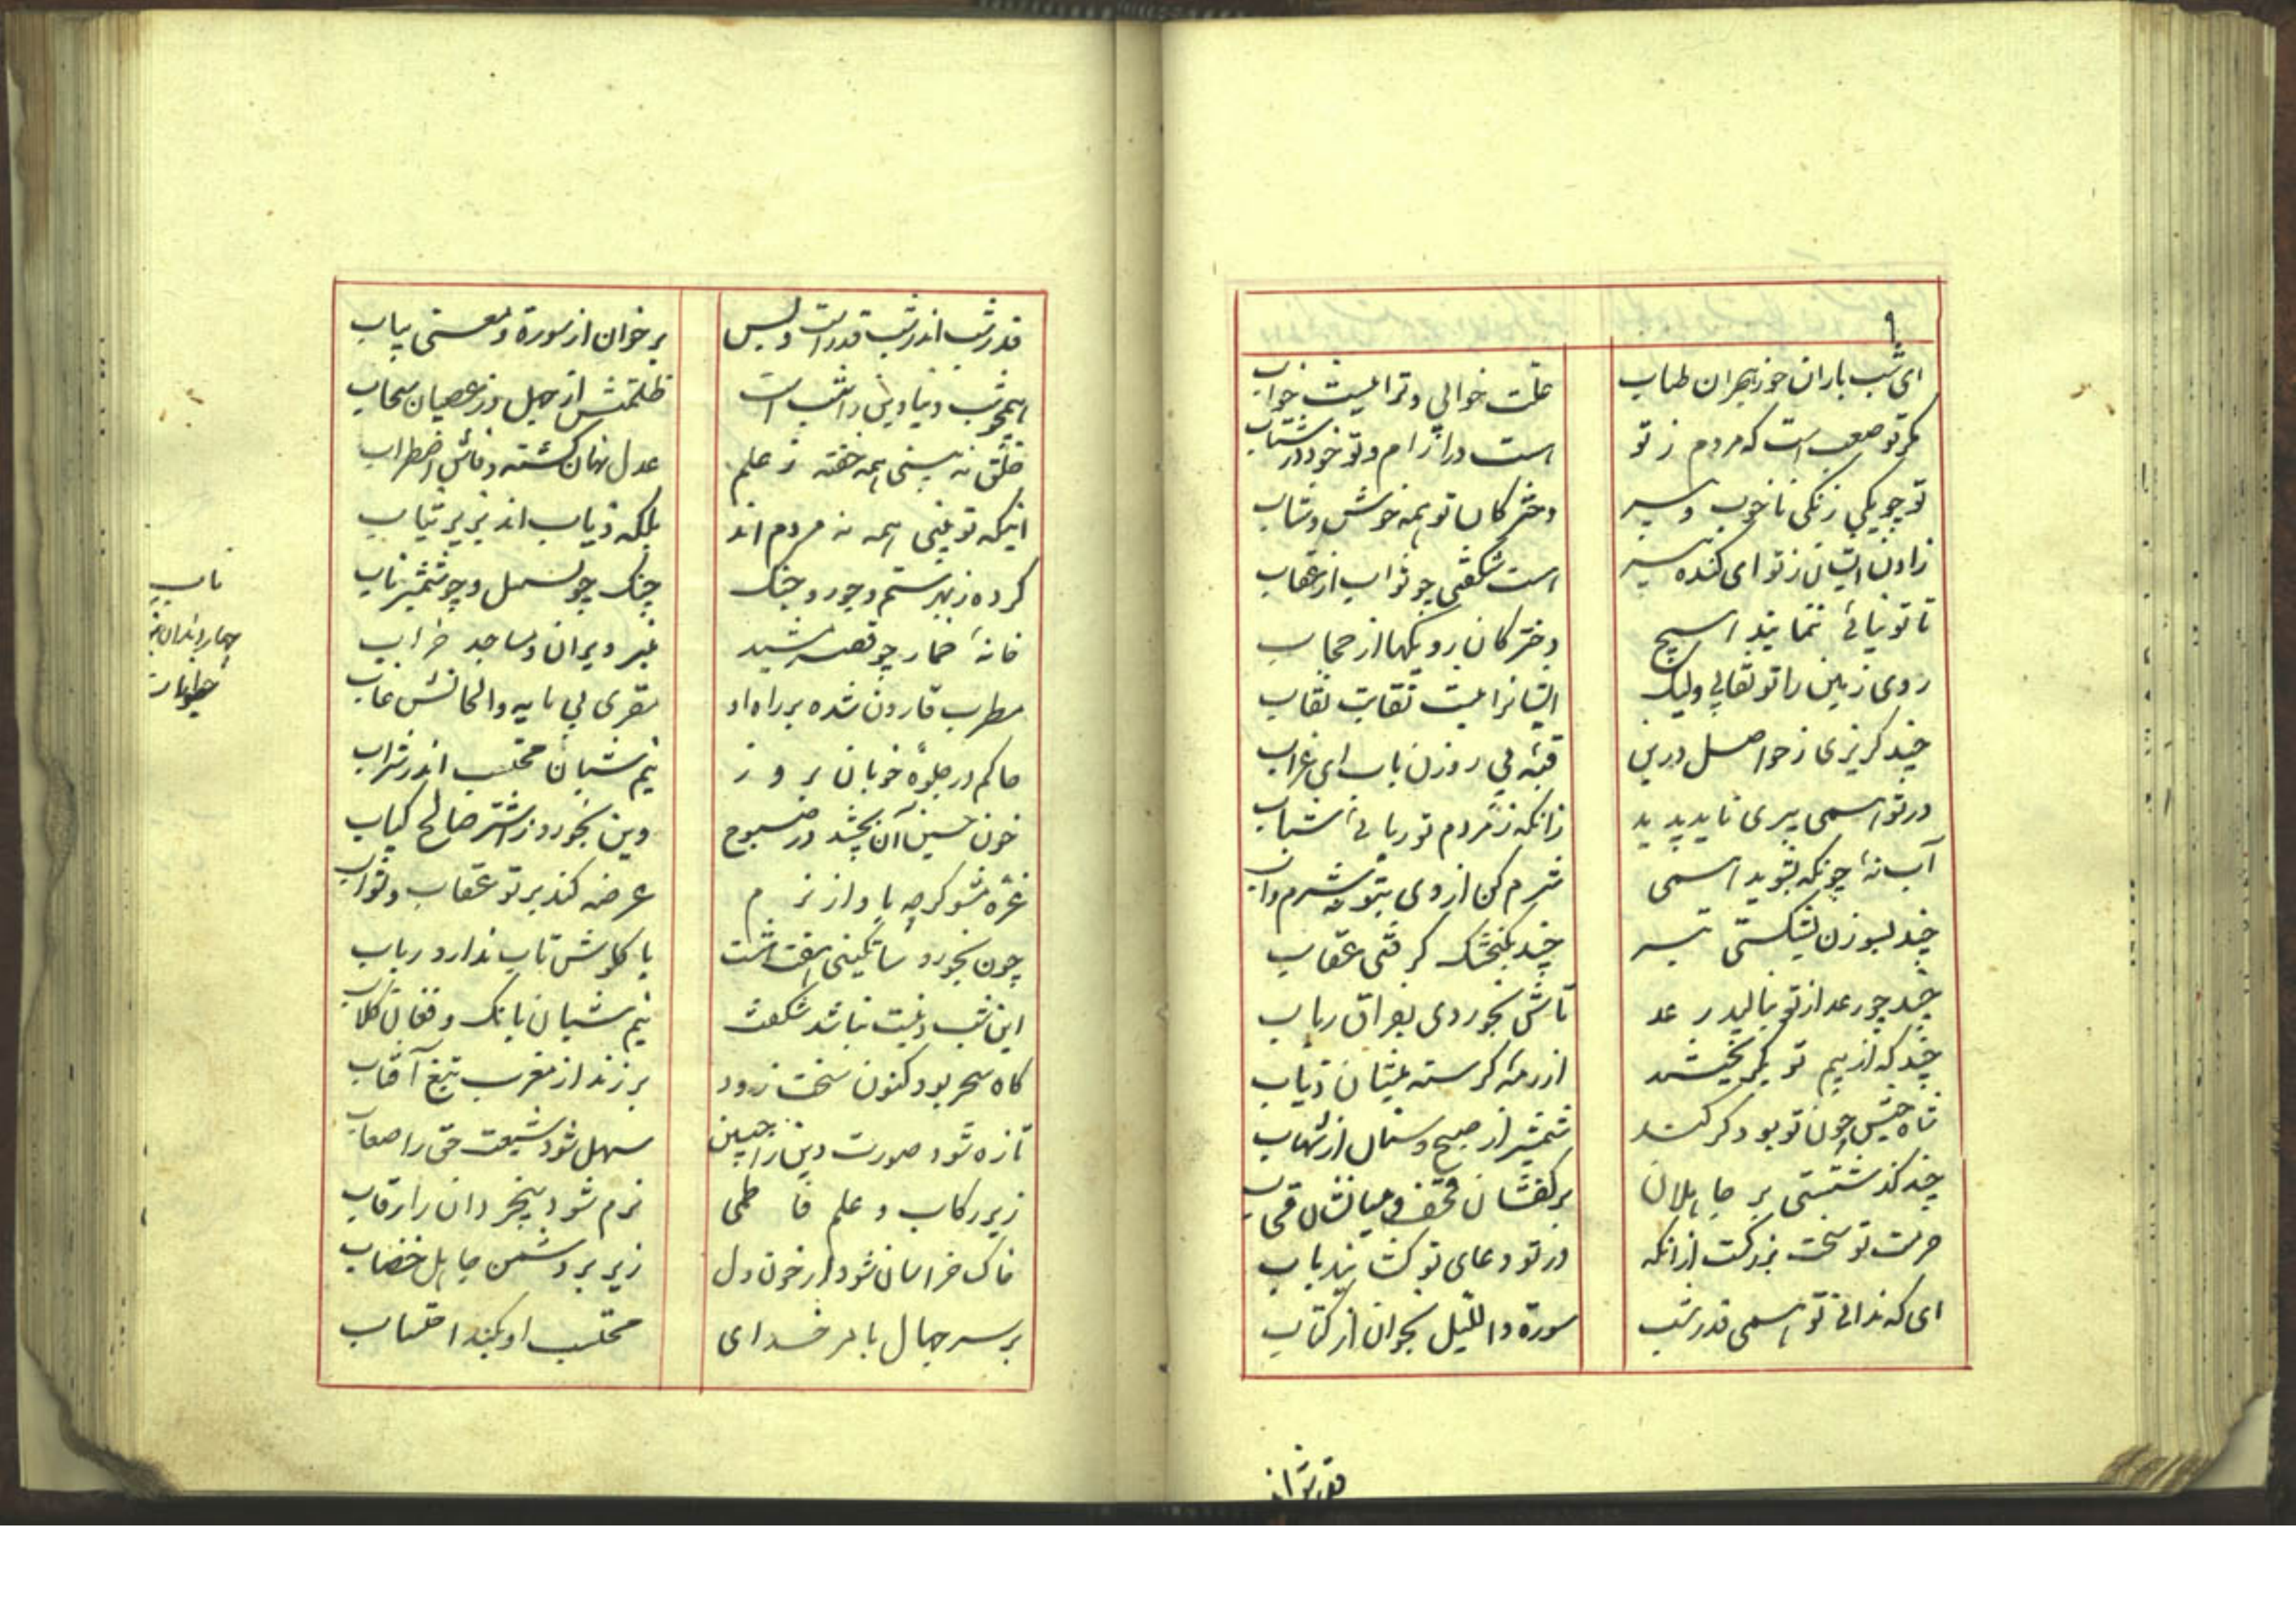 ای شب باران خور بهران طباب علت خوابی و ترا نیست خواب
مکر تو صعب است که مردم ز تو است در آرام و تو خود در شتاب
تو چو یکی زنگی ناخوب و پیر دخترکان تو همه خوش و شاب
زادن ایشان ز تو ای گنده پیر است شگفتی چو ثواب از عقاب
تا تو نیائی ننمایند هیچ دخترکان رویکها از حجاب
روی زمین را تو نقابی ولیک ایشانرا نیست نقابت نقاب
چند گریزی ز حواصل درین قبه بی روزن باب ای غراب
در تو همی پیری ناید پدید زانکه ز مردم تو ربائی شباب
آب نهٔ چونکه بشوید همی شرم کن از وی بتو بر شرم و آب
چند بسوزن بشکستی تبر چند بکنجشک گرفتی عقاب
چند چو رعد از تو بنالید رعد تاش بخوردی بفراق رباب
چند که از بیم تو بگریختند از رمهٔ گرسنه میشان ذیاب
شاه حبش چون تو بود گر کند شمشیر از صبح و سنان از شهاب
چند گذشتستی بر جاهلان بر کفشان قحف و میانشان قحاب
حرمت تو سخت بزرگست ازانکه در تو دعای تو کشایند باب
ای که ندانی تو همی قدر شب سورهٔ واللیل بخوان از کتاب
قدر شب اند
قدر شب اندر شب قدرست و بس برخوان از سوره و معنی بیاب
همچو شب دنیا دین را شب است ظلمتش از جهل و ز عصیان سحاب
خلق نه بینی همه خفته ز علم عدل نهان گشته و فاش اضطراب
اینکه تو بینی همه نه مردم اند بلکه ذیاب اند بزیر ثیاب
کرده ز بهر ستم و جور و جنگ چنگ چو نسمل و چو شمشیر ناب
خانهٔ خمار چو قصر مشید منبر ویران و مساجد خراب
مطرب قارون شده بر راه او مقری بی مایه و الحانش غاب
حاکم در جلوهٔ خوبان بروز نیم شبان محتسب اندر شراب
خون حسین آن بچشد در صبوح وین بخورد ز اشتر صالح کباب
غره مشو گرچه بآواز نرم عرضه کند بر تو عقاب و ثواب
چون بخورد ساتگینی هفت هشت با گلوش تاب ندارد رباب
این شب دینست نباشد شگفت نیم شبان بانگ و فغان کلاب
گاه سحر بود کنون سخت زود برزند از مغرب تیغ آفتاب
تازه شود صورت دین را جبین سهل شود شیعت حق را صعاب
زیر رکاب و علم فاطمی نرم شود بیخردان را رقاب
خاک خراسان شود از خون دل زیر بر دشمن جاهل خضاب
بر سر جهال بامر خدای محتسب او بکند احتساب
ناب